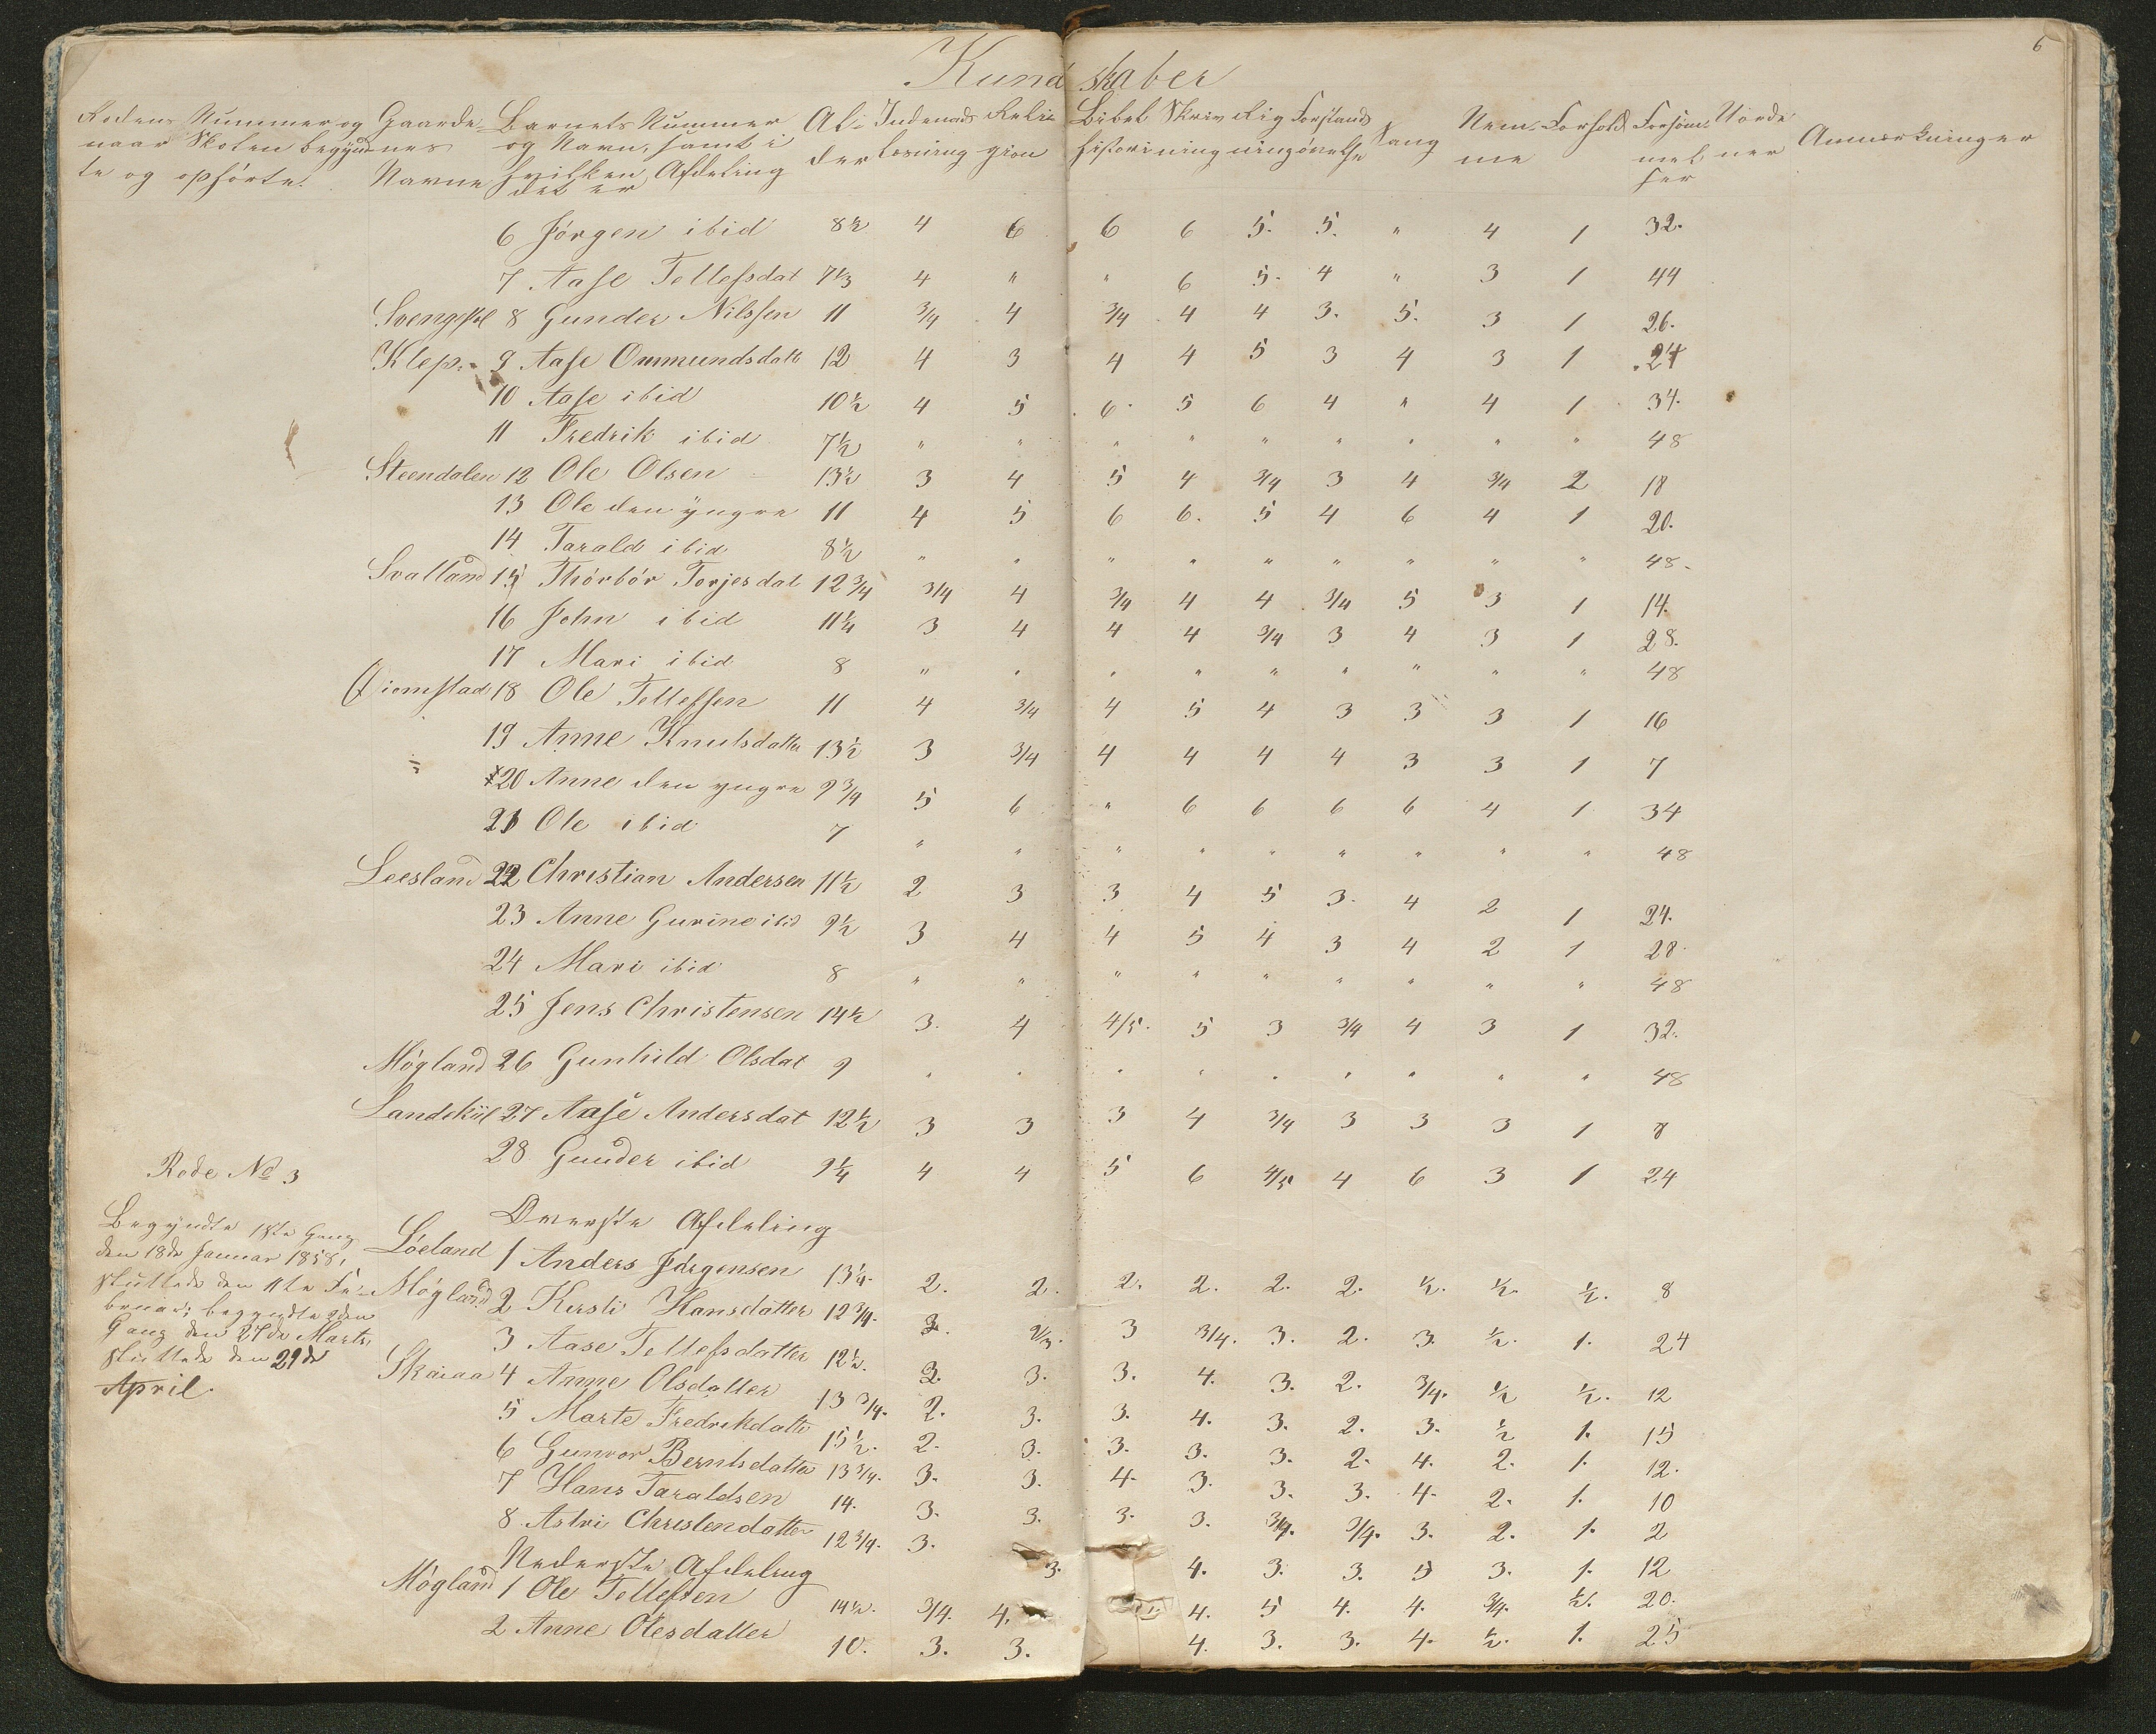 6
Kundskaber
Rodens Nummer og naar Skolen begyndte og ophørte. Gaardenes Navne Barnets Nummer og Navn, samt i hvilken Afdeling det er Alder Indenadslæsning Religion Bibelhistori Skrivning Rigning Forstandsøvelse Sang Nemme Forhold Forsømmelser Anmærkninger
6 Jørgen ibid 8½ 4 6 6 6 5. 5. " 4 1 32.
7 Aase Tellefsdat 7⅓ 4 " " 6 5. 4 " 3 1 44
8 Gunder Nilssen 11 3/4 4 3/4 4 4 3. 5. 3 1 26.
Klep. 9 Aase Ommundsdatt 12 4 3 4 4 5 3 4 3 1 24
10 Aase ibid 10½ 4 5 6. 5 6 4 " 4 1 34.
11 Fredrik ibid 7½ " " " " " " " " " 48
Steendalen 12 Ole Olsen 13½ 3 4 5 4 3/4 3 4 3/4 2 18
13 Ole den yngre 11 4 5 6 6. 5 4 6 4 1 20.
14 Tarald ibid 8½ " " " " " " " " " 48.
Svalland 15 Thórbór Torjesdat 12 3/4 3/4 4 3/4 4 4 3/4 5 3 1 14.
16 John ibid 11¼ 3 4 4 4 3/4 3 4 3 1 28.
17 Mari ibid 8 " " " " " " " " " 48
18 Ole Tellefsen 11 4 3/4 4 5 4 3 3 3 1 16
19 Anne Knutsdatter 13½ 3 3/4 4 4 4 4 3 3 1 7
20 Anne den yngre 9 3/4 5 6 " 6 6 6 6 4 1 34
21 Ole ibid 7 " " " " " " " " " 48
Leesland 22 Christian Andersen 11½ 2 3 3 4 5 3. 4 2 1 24.
23 Anne Gurine ibid 9½ 3 4 4 5 4 3 4 2 1 28.
24 Mari ibid 8 " " " " " " " " " 48
25 Jens Christensen 14½ 3. 4 4/5. 5 3 3/4 4 3 1 32.
Mógland 26 Gunhild Olsdat 9 " " " " " " " " " 48
27 Aase Andersdat 12½ 3 3 3 4 3/4 3 3 3 1 8
28 Gunder ibid 9¼ 4 4 5 6 4/5 4 6 3 1 24
Rode No 3
Begyndte 1ste Gang
den 18de Januar 1858,
sluttede den 11te Fe-
bruar; begyndte 2den
Gang den 27de Marts,
sluttede den 29de
April.
Øverste Afdeling
Lóeland 1 Anders Jørgensen 13¼. 2. 2. 2. 2. 2. 2. ½. ½. ½. 8
Mógland 2 Kirsti Hansdatter 12 3/4. 2. 2/3. 3 3/4. 3. 2. 3. ½. 1. 24
3 Aase Tellefsdatter 12½. 2. 3. 3. 4. 3. 2. 3/4. ½ ½. 12
Skaraa 4 Anne Olsdatter 13 3/4. 2. 3. 3. 4. 3. 2. 3. ½ 1. 15
5 Marte Fredrikdatte 15½. 2. 3. 3. 3. 3. 2. 4. 2. 1. 12.
6 Gunvor Berntsdatter 13 3/4. 3. 3. 4. 3. 3. 3. 4. 2. 1. 10
7 Hans Taraldsen 14. 3. 3. 3. 3. 3/4. 3/4. 3. 2. 1. 2
8 Astri Christendatter 12 3/4. 3. 3. 4. 3. 3. 5 3. 1. 12
Nederste Afdeling
Mógland 1 Ole Tellefsen 14½. 3/4. 4. 4. 5 4. 4. 3/4. ½. 20.
2 Anne Olesdatter 10. 3. 3. 4. 3. 3. 4. ½. 1. 25